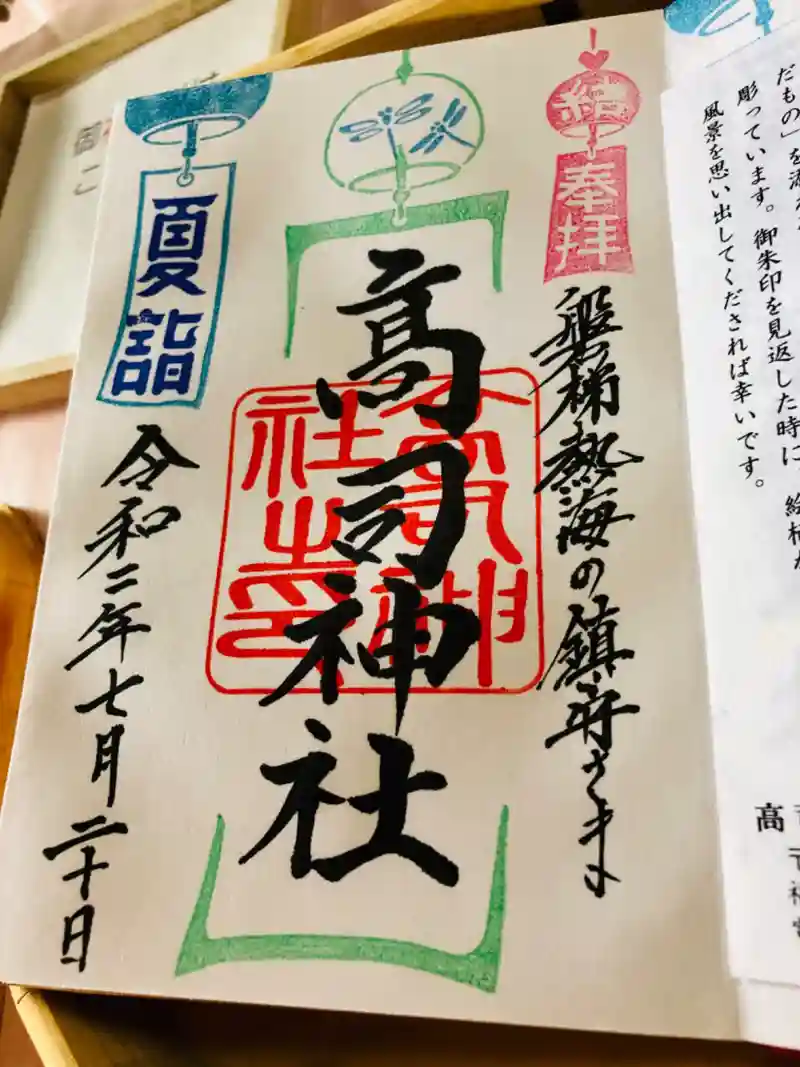 結
奉拝
磐梯熱海の鎮守さま
高司神社
高司神社之印
夏詣
令和二年七月二十日
彫っています。御朱印を見返した時に、絵柄か
風景を思い出してくだされば幸いです。
高